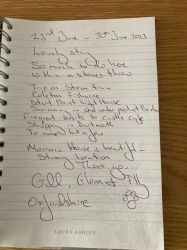 23rd June - 30th June 2023
Lovely stay
So much to do here
within a stones throw.
Trip on Steam train
Coleton Fishacre
Start Point Lighthouse
Swimming in and under part at
Frequent visits to castle cafe
Shopping in Dartmouth
To name but a few
House is beautiful -
Stunning location
Thank you
Gill Glen &
Oxfordshire
LAURA ASHLEY